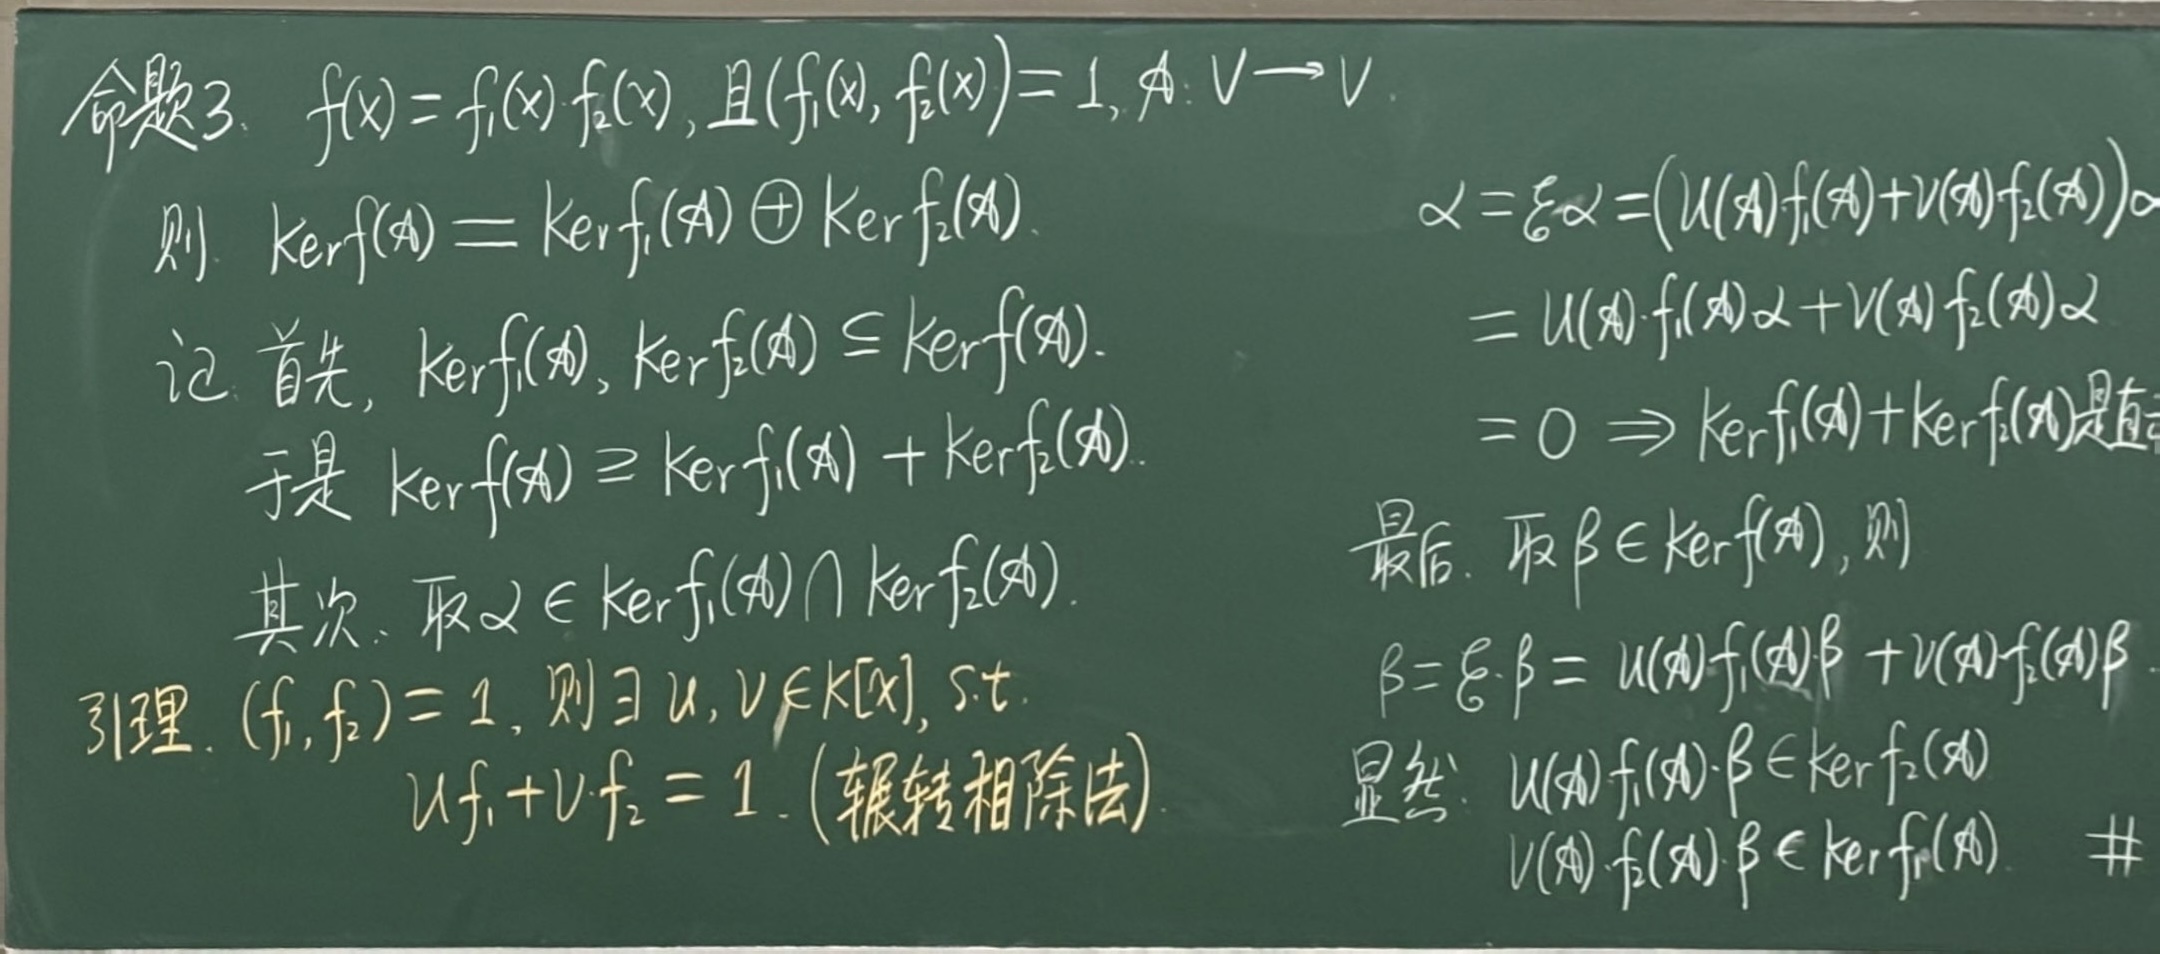 命题3. f(x) = f₁(x)·f₂(x), 且(f₁(x), f₂(x)) = 1, 𝒜: V → V.
则 kerf(𝒜) = kerf₁(𝒜) ⊕ kerf₂(𝒜).
记. 首先, kerf₁(𝒜), kerf₂(𝒜) ⊆ kerf(𝒜).
于是 kerf(𝒜) ⊇ kerf₁(𝒜) + kerf₂(𝒜).
其次. 取α ∈ kerf₁(𝒜) ∩ kerf₂(𝒜).
引理. (f₁, f₂) = 1, 则∃ u, v ∈ K[x], s.t.
uf₁ + v·f₂ = 1. (辗转相除法)
α = ℰα = (u(𝒜)f₁(𝒜) + v(𝒜)f₂(𝒜))α
= u(𝒜)·f₁(𝒜)α + v(𝒜)f₂(𝒜)α
= 0 ⇒ kerf₁(𝒜) + kerf₂(𝒜)是直
最后. 取 β ∈ kerf(𝒜), 则
β = ℰ·β = u(𝒜)f₁(𝒜)β + v(𝒜)·f₂(𝒜)β.
显然: u(𝒜)·f₁(𝒜)·β ∈ kerf₂(𝒜)
v(𝒜)·f₂(𝒜)·β ∈ kerf₁(𝒜). #